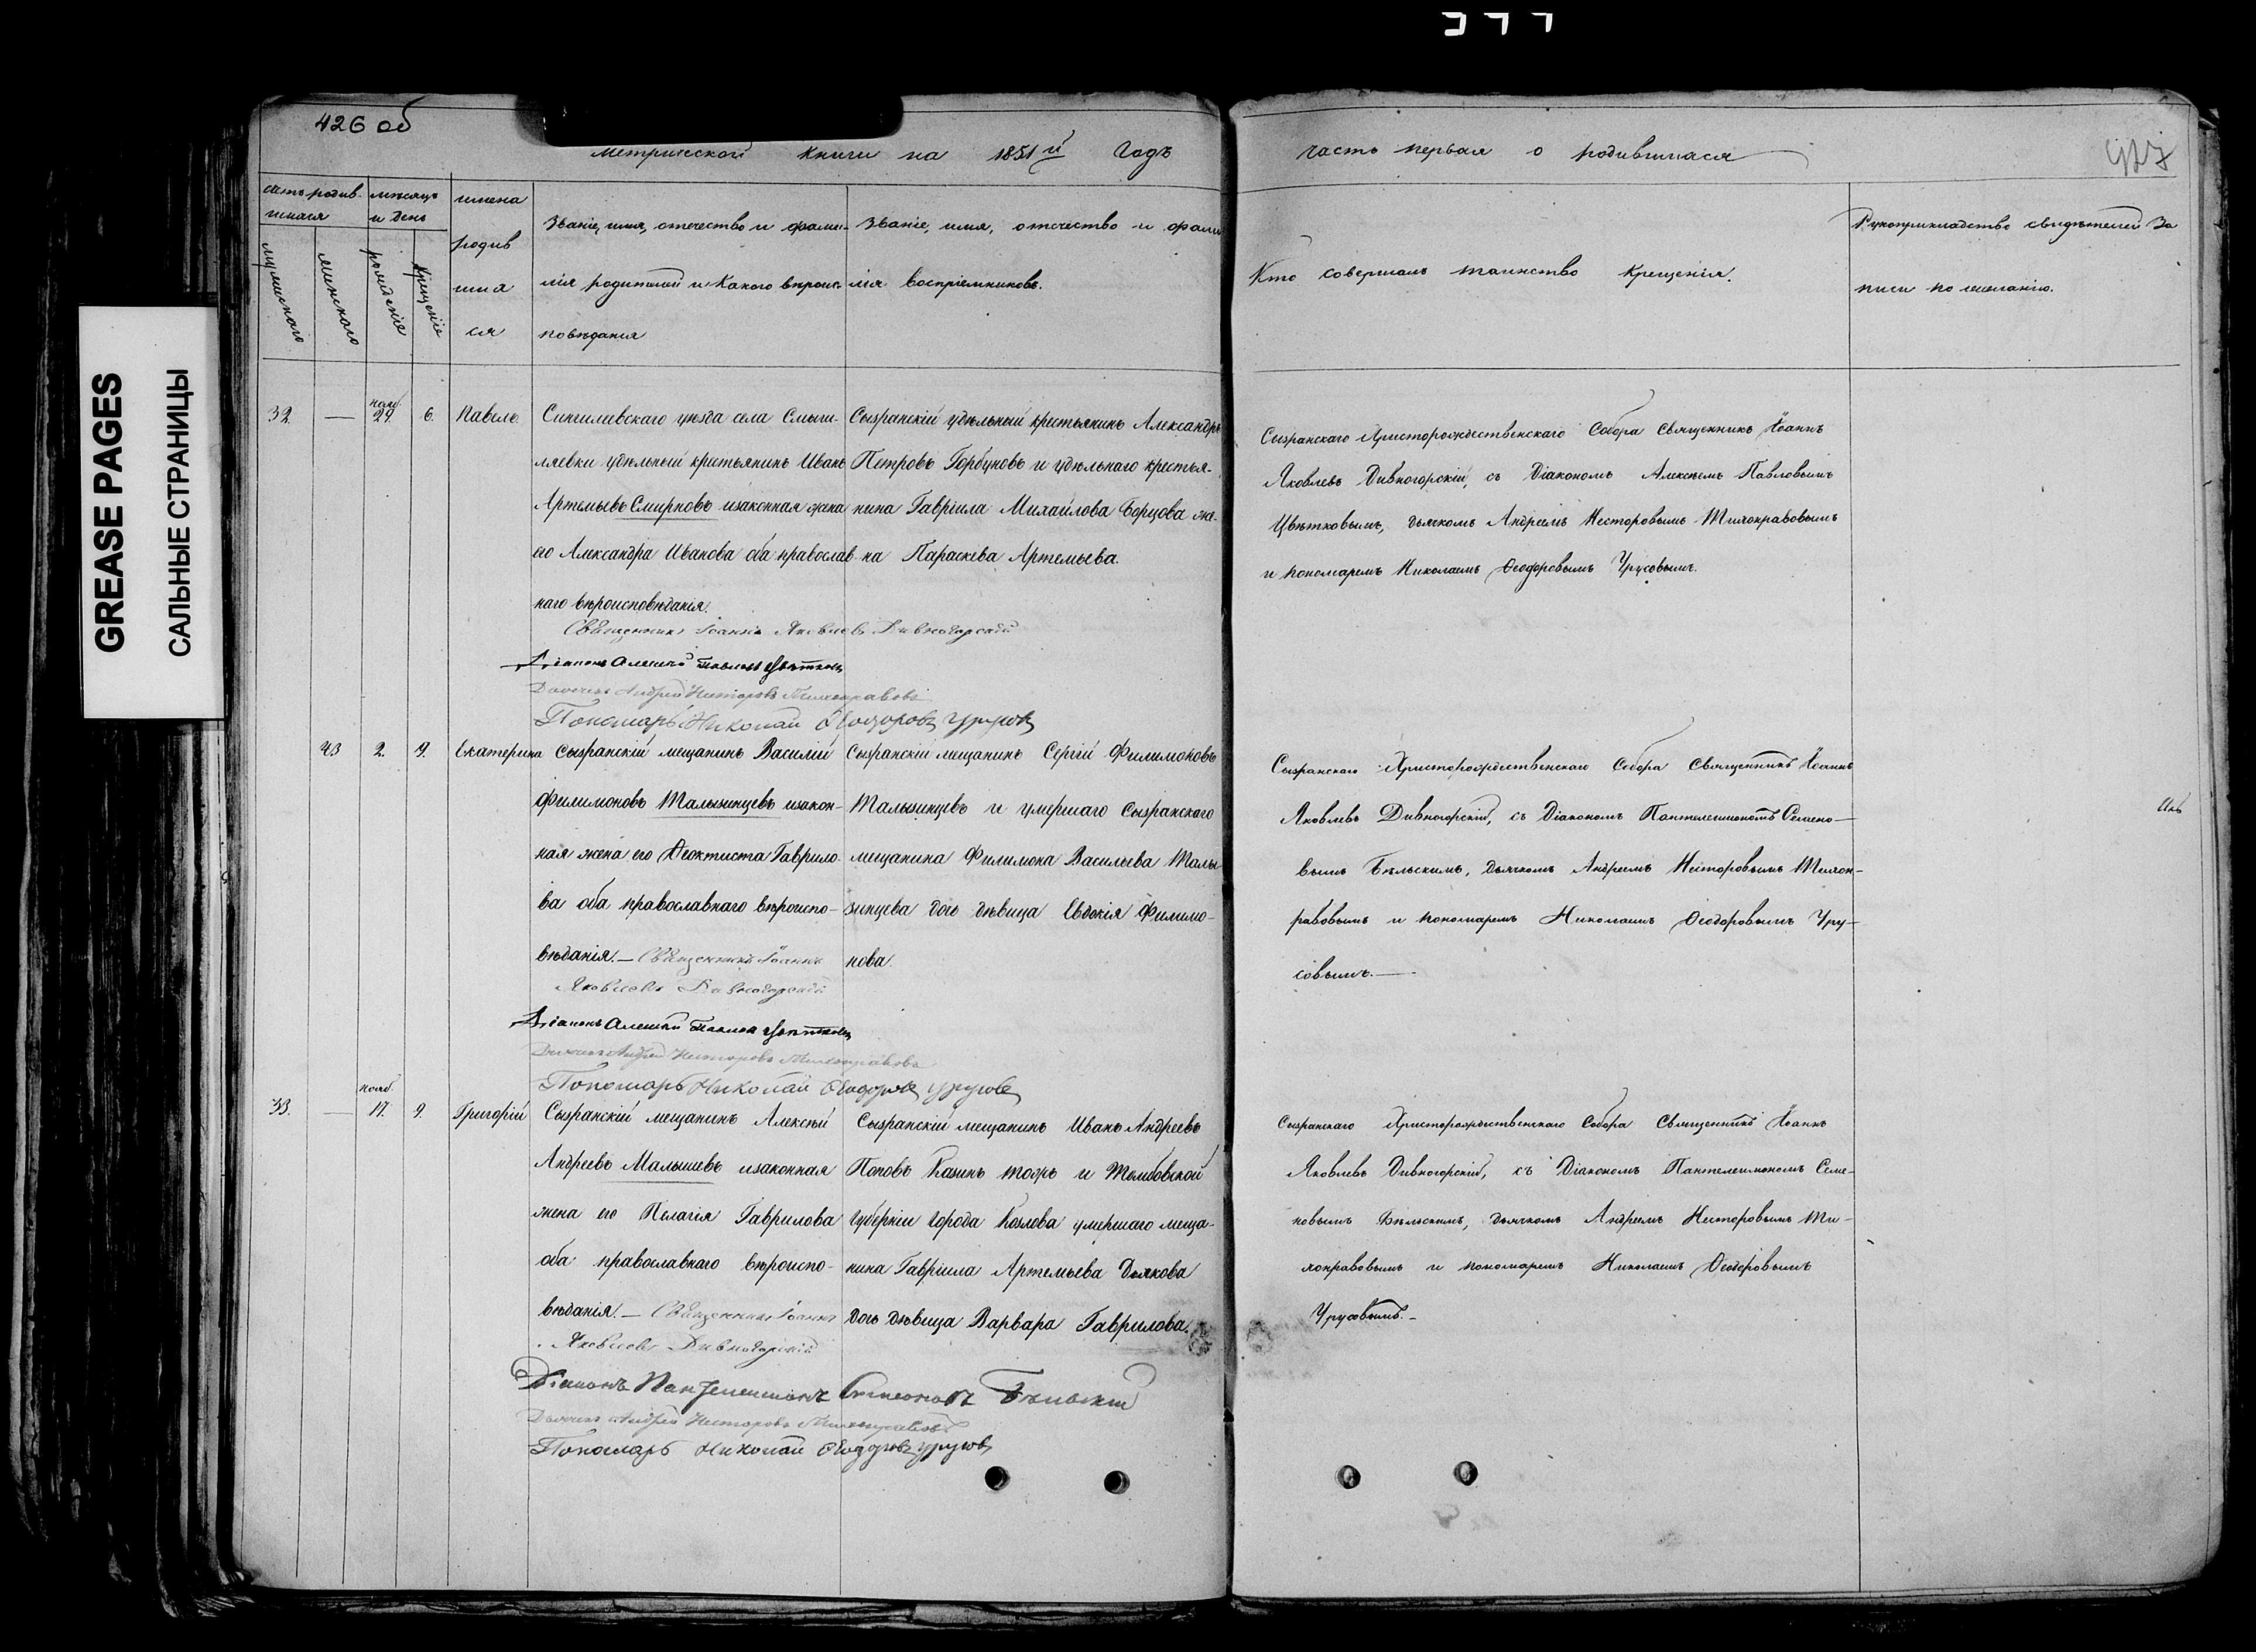 426 об
Метрической книги на 1851й Годъ
часть первая о родившихся
427
счетъ родив-
шихся
мужескаго
женскаго
мѣсяцъ
и день
рожденіе
крещеніе
имена
родив
шиа
ся
Званіе, имя, отечество и фами-
лія родителей и какого вѣроис-
повѣданія
Званіе, имя, отечество и фами
лія воспріемниковъ.
Кто совершалъ таинство крещенія.
Рукоприкладство свидѣтелей За
писи по желанію.
32. — нояб. 29. 6. Павелъ.
Сингилевскаго уѣзда села Смыш-
ляевки удѣльный критьянинъ Иванъ
Артемьевъ Смирновъ изаконная жена
его Александра Иванова оба православ-
наго вѣроисповѣданія.
Священникъ Іоаннъ Яковлевъ Дивногорскій
Діаконъ Алексѣй Павловъ Цвѣтковъ
Дьячекъ Андрей Несторовъ Тихонравовъ
Пономарь Николай Ѳеодоровъ Урусовъ
Сызранскій удѣльный крестьянинъ Александръ
Петровъ Горбуновъ и удѣльнаго крестья-
нина Гавріила Михайлова Борцова же-
на Параскева Артемьева.
Сызранскаго Христорождественскаго Собора Священникъ Іоаннъ
Яковлевъ Дивногорскій, съ Діакономъ Алексѣемъ Павловымъ
Цвѣтковымъ, дьячкомъ Андреемъ Несторовымъ Тихонравовымъ
и пономаремъ Николаемъ Ѳеодоровымъ Урусовымъ.
43 2. 9. Екатерина
Сызранскій мещанинъ Василій
Филимоновъ Малызинцевъ изакон-
ная жена его Ѳеоктиста Гаврило-
ва оба православнаго вѣроиспо-
вѣданія. — Священникъ Іоаннъ
Яковлевъ Дивногорскій
Діаконъ Алексѣй Павловъ Цвѣтковъ
Дьячекъ Андрей Несторовъ Тихонравовъ
Пономарь Николай Ѳеодоровъ Урусовъ
Сызранскій мещанинъ Сергій Филимоновъ
Малызинцевъ и умершаго Сызранскаго
мещанина Филимона Васильева Малы
зинцева дочь дѣвица Евдокія Филимо-
нова.
Сызранскаго Христорождественскаго Собора Священникъ Іоаннъ
Яковлевъ Дивногорскій, съ Діакономъ Пантелеимономъ Семено-
вымъ Бѣльскимъ, дьячкомъ Андреемъ Несторовымъ Тихон-
равовымъ и пономаремъ Николаемъ Ѳеодоровымъ Уру-
совымъ. —
33. — нояб. 17. 9. Григорій
Сызранскій мещанинъ Алексѣй
Андреевъ Малышевъ изаконная
жена его Пелагія Гаврилова
оба православнаго вѣроиспо-
вѣданія. — Священникъ Іоаннъ
Яковлевъ Дивногорскій
Діаконъ Пантелеимонъ Симеоновъ Бѣльскій
Дьячекъ Андрей Несторовъ Тихонравовъ
Пономарь Николай Ѳеодоровъ Урусовъ
Сызранскій мещанинъ Иванъ Андреевъ
Поповъ Казинъ тожъ и Тамбовской
Губерніи города Козлова умершаго меща-
нина Гавріила Артемьева Дьякова
дочь дѣвица Варвара Гаврилова.
Сызранскаго Христорождественскаго Собора Священникъ Іоаннъ
Яковлевъ Дивногорскій, съ Діакономъ Пантелеимономъ Семе-
новымъ Бѣльскимъ, дьячкомъ Андреемъ Несторовымъ Ти-
хонравовымъ и пономаремъ Николаемъ Ѳеодоровымъ
Урусовымъ. —
GREASE PAGES
САЛЬНЫЕ СТРАНИЦЫ